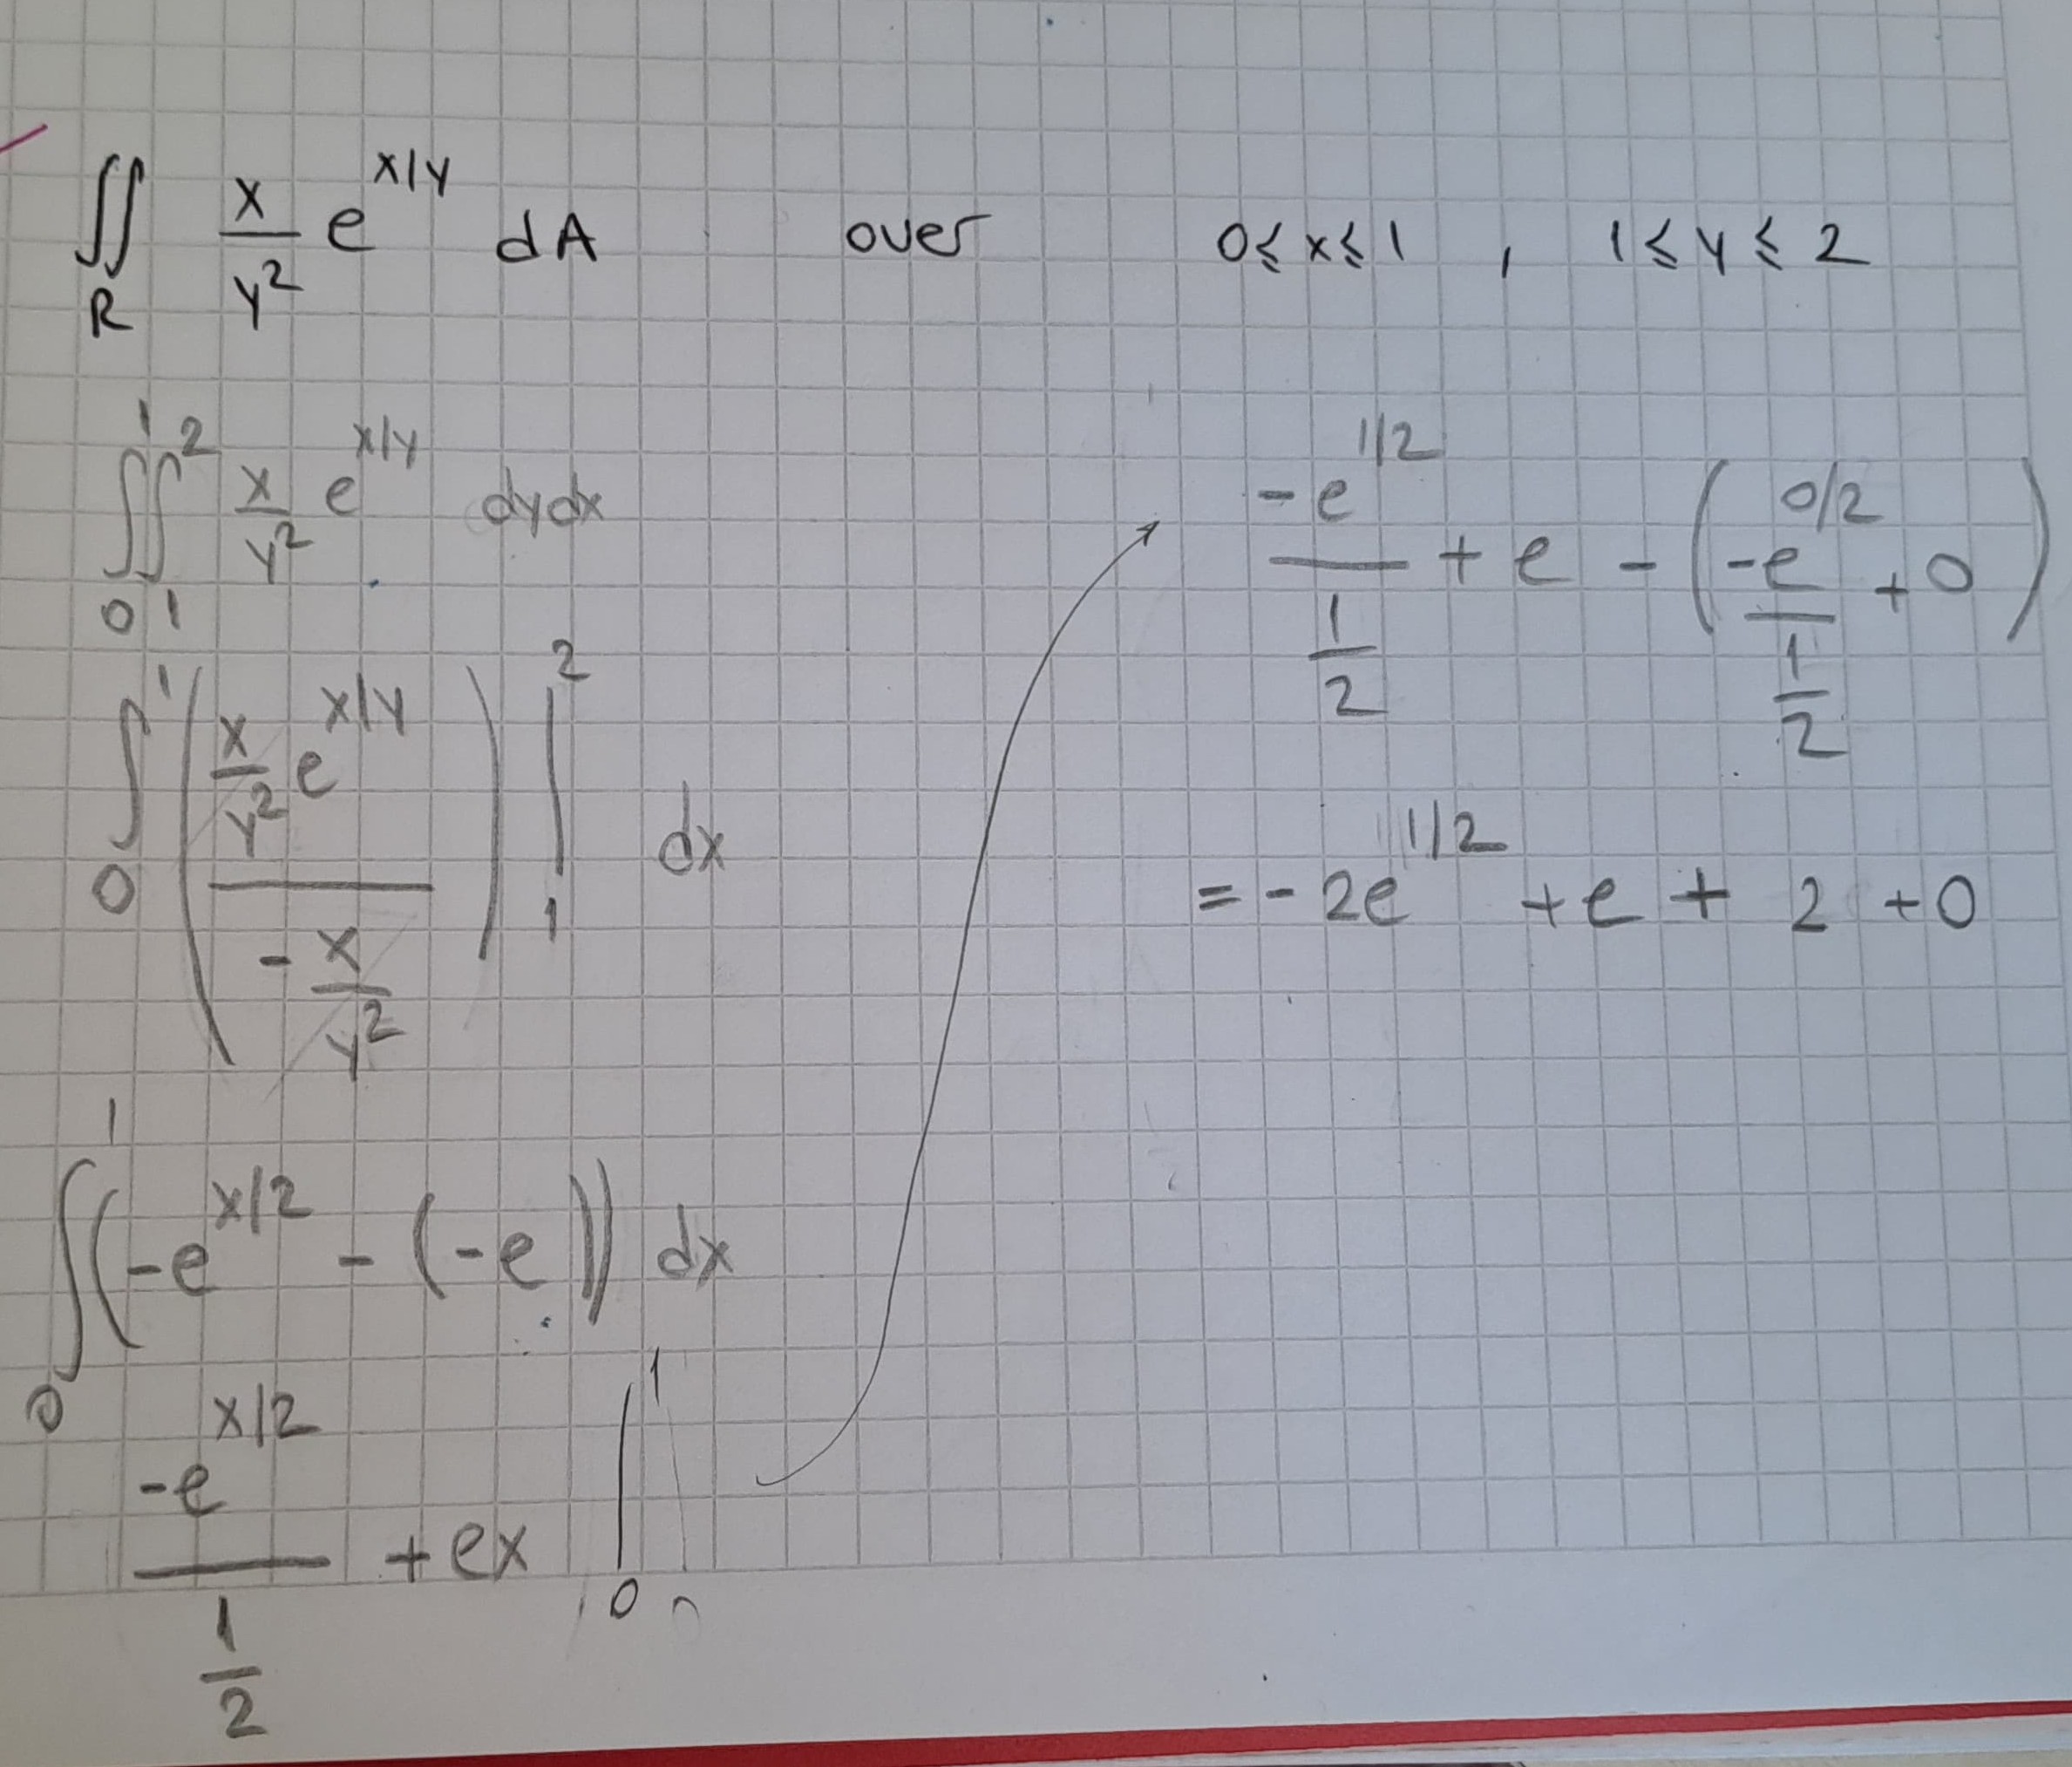 ∬_R x/y² e^(x/y) dA over 0≤x≤1 , 1≤y≤2
∫_0^1 ∫_1^2 x/y² e^(x/y) dydx
∫_0^1 ( (x/y² e^(x/y)) / (-x/y²) ) |_1^2 dx
∫_0^1 (-e^(x/2) - (-e)) dx
-e^(x/2) / (1/2) + ex |_0^1
-e^(1/2) / (1/2) + e - ( -e^(0/2) / (1/2) + 0 )
= -2e^(1/2) + e + 2 + 0